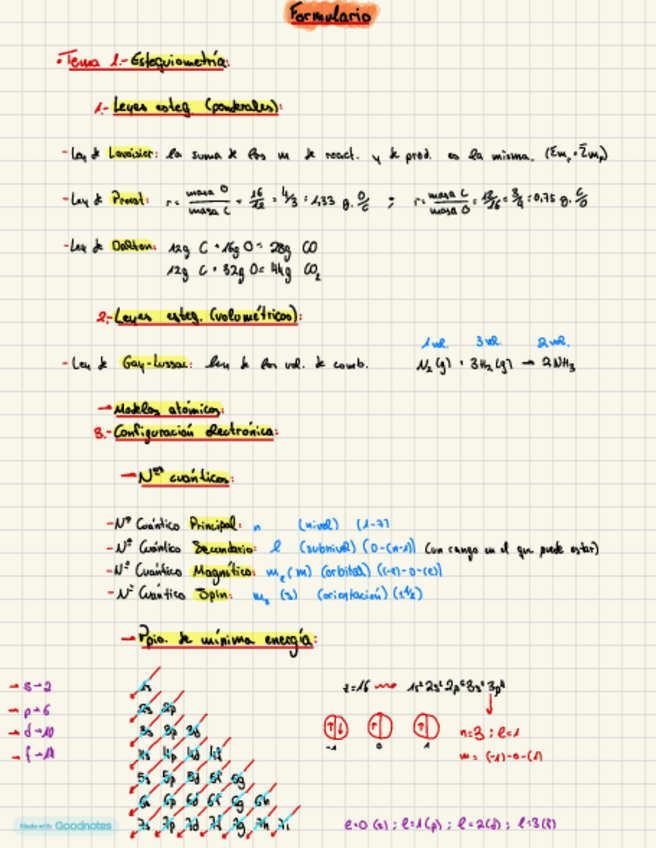 Formulario
• Tema 1.- Estequiometría:
1.- Leyes esteq. (ponderales):
- Ley de Lavoisier: la suma de las m de react. y de prod. es la misma. (Σmr = Σmp)
- Ley de Proust: r = masa O / masa C = 16/12 = 4/3 = 1,33 g. O/C ; r = masa C / masa O = 12/16 = 3/4 = 0,75 g. C/O
- Ley de Dalton: 12g C + 16g O = 28g CO
12g C + 32g O = 44g CO₂
2.- Leyes esteq. (volumétricas):
1 vol. 3 vol. 2 vol.
- Ley de Gay-Lussac: ley de los vol. de comb. N₂(g) + 3H₂(g) → 2NH₃
→ Modelos atómicos:
3.- Configuración electrónica:
→ Nºs cuánticos:
- Nº Cuántico Principal: n (nivel) (1-7)
- Nº Cuántico Secundario: l (subnivel) (0-(n-1)) (un rango en el que puede estar)
- Nº Cuántico Magnético: mₗ (m) (orbital) ((-l)-0-(l))
- Nº Cuántico Spin: mₛ (s) (orientación) (±½)
→ Ppio. de mínima energía:
→ s→2
→ p→6
→ d→10
→ f→14
1s
2s 2p
3s 3p 3d
4s 4p 4d 4f
5s 5p 5d 5f 5g
6s 6p 6d 6f 6g 6h
7s 7p 7d 7f 7g 7h 7i
z=16 → 1s²2s²2p⁶3s²3p⁴
-1 0 1
n=3 ; l=1
m = (-1)-0-(1)
l=0 (s) ; l=1 (p) ; l=2 (d) ; l=3 (f)
Made with Goodnotes